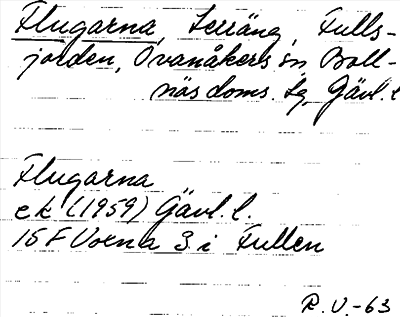 Flugarna, Lerräng, Fulls-
jorden, Ovanåkers sn Boll-
näs doms. Lg, Gävl. l
Flugarna
ek (1959) Gävl. l.
15 F Voxna 3 i Fullen
R. V. -63